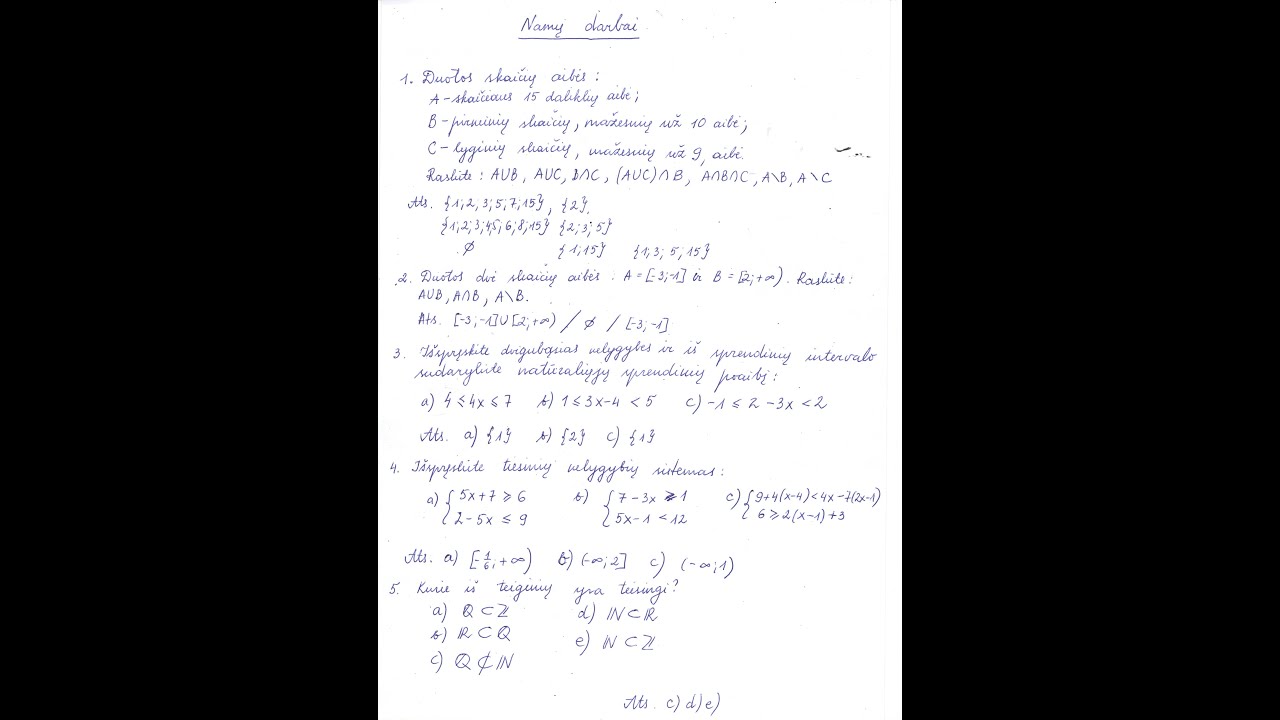 Namų darbai
1. Duotos skaičių aibės:
A - skaičiaus 15 daliklių aibė;
B - pirminių skaičių, mažesnių už 10 aibė;
C - lyginių skaičių, mažesnių už 9, aibė.
Raskite: A∪B, A∪C, B∩C, (A∪C)∩B, A∩B∩C, A\B, A\C
Ats. {1;2,3;5;7;15}, {2},
{1;2;3;4,5;6;8;15} {2;3;5}
∅ {1;15} {1;3;5;15}
2. Duotos dvi skaičių aibės. A=[-3;-1] ir B=[2;+∞). Raskite:
A∪B, A∩B, A\B.
Ats. [-3;-1]∪[2;+∞) / ∅ / [-3;-1]
3. Išspręskite dvigubąsias nelygybes ir iš sprendinių intervalo
sudarykite natūraliųjų sprendinių poaibį:
a) 4 ≤ 4x ≤ 7 b) 1 ≤ 3x-4 < 5 c) -1 ≤ 2-3x < 2
Ats. a) {1} b) {2} c) {1}
4. Išspręskite tiesinių nelygybių sistemas:
a) { 5x+7 ≥ 6 b) { 7-3x ≥ 1 c) { 9+4(x-4)<4x-7(2x-1)
2-5x ≤ 9 5x-1 < 12 6 ≥ 2(x-1)+3
Ats. a) [-1/6;+∞) b) (-∞;2] c) (-∞;1)
5. Kurie iš teiginių yra teisingi?
a) ℚ ⊂ ℤ d) ℕ ⊂ ℝ
b) ℝ ⊂ ℚ e) ℕ ⊂ ℤ
c) ℚ ⊄ ℕ
Ats. c) d) e)